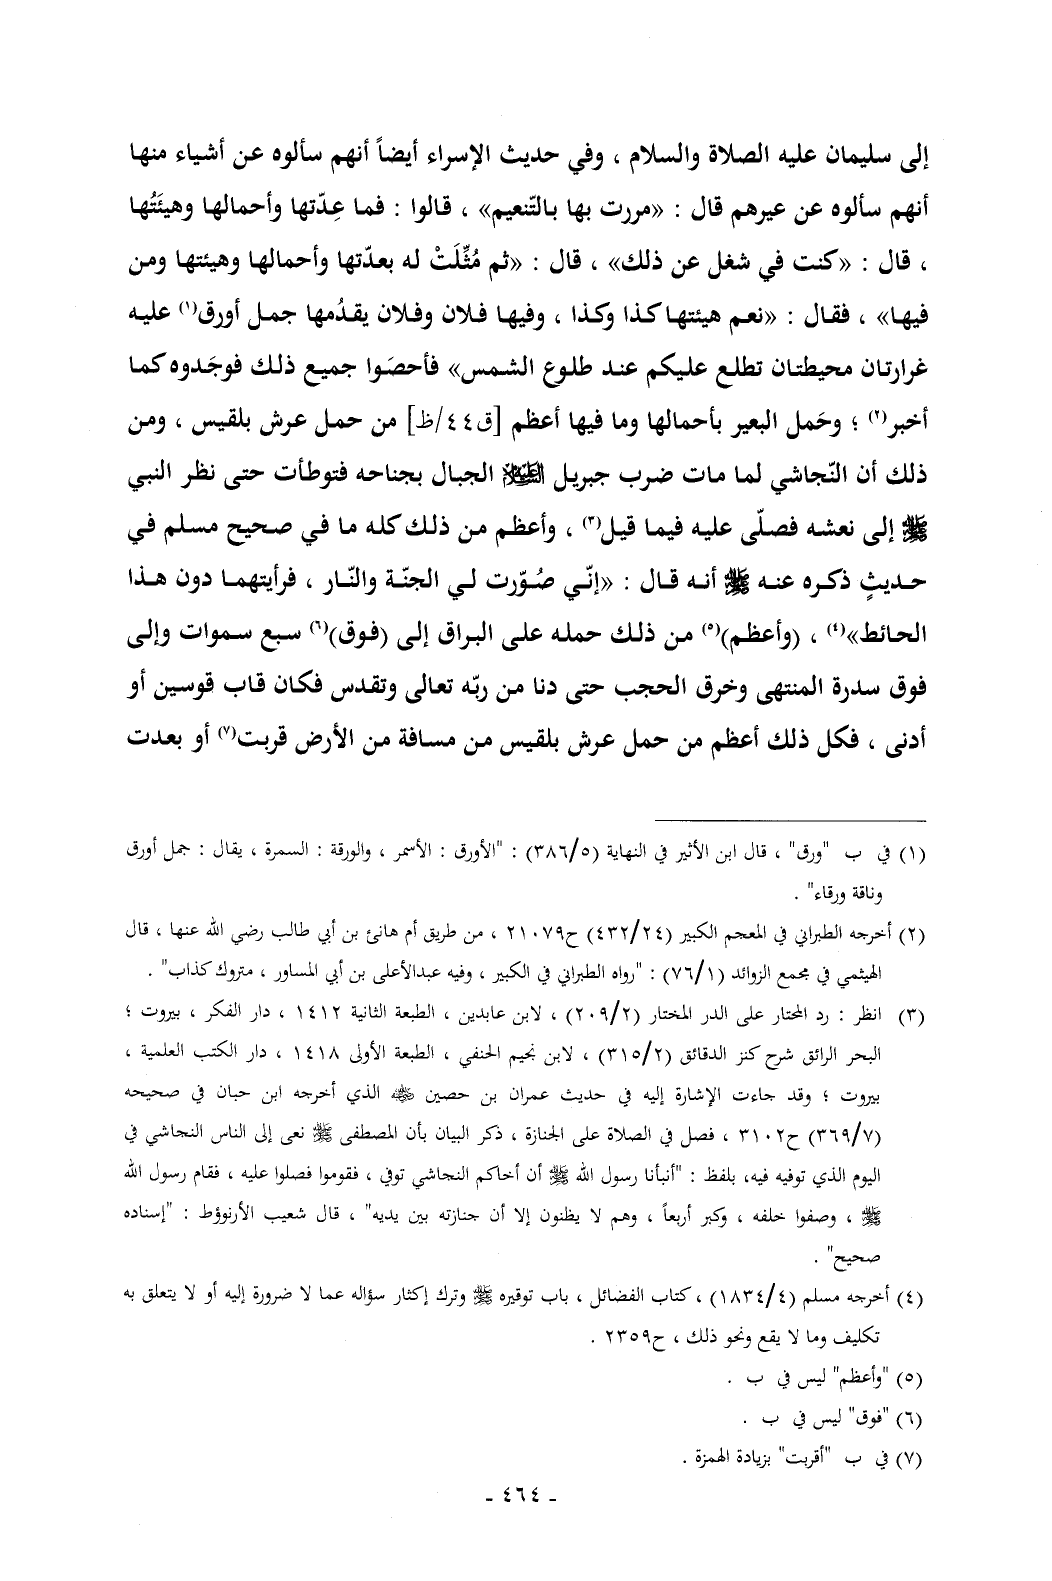 إلى سليمان عليه الصلاة والسلام ، وفي حديث الإسراء أيضاً أنهم سألوه عن أشياء منها
أنهم سألوه عن عيرهم قال : «مررت بها بالتّنعيم» ، قالوا : فما عِدّتها وأحمالها وهيئَتُها
، قال : «كنت في شغل عن ذلك» ، قال : «ثم مُثِّلَتْ له بعدّتها وأحمالها وهيئتها ومن
فيها» ، فقال : «نعم هيئتها كذا وكذا ، وفيها فلان وفلان يقدُمها جمل أورق(١) عليه
غرارتان محيطتان تطلع عليكم عند طلوع الشمس» فأحصَوا جميع ذلك فوجَدوه كما
أخبر(٢) ؛ وحَمل البعير بأحمالها وما فيها أعظم [ق٤٤/ظ] من حمل عرش بلقيس ، ومن
ذلك أن النّجاشي لما مات ضرب جبريل عليه السلام الجبال بجناحه فتوطأت حتى نظر النبي
ﷺ إلى نعشه فصلّى عليه فيما قيل(٣) ، وأعظم من ذلك كله ما في صحيح مسلم في
حديثٍ ذكره عنه ﷺ أنه قال : «إنّي صُوّرت لي الجنّة والنّار ، فرأيتهما دون هذا
الحائط»(٤) ، (وأعظم)(٥) من ذلك حمله على البراق إلى (فوق)(٦) سبع سموات وإلى
فوق سدرة المنتهى وخرق الحجب حتى دنا من ربّه تعالى وتقدس فكان قاب قوسين أو
أدنى ، فكل ذلك أعظم من حمل عرش بلقيس من مسافة من الأرض قربت(٧) أو بعدت
(١) في ب "ورق" ، قال ابن الأثير في النهاية (٣٨٦/٥) : "الأورق : الأسمر ، والورقة : السمرة ، يقال : جمل أورق
وناقة ورقاء" .
(٢) أخرجه الطبراني في المعجم الكبير (٤٣٢/٢٤) ح٢١٠٧٩ ، من طريق أم هانئ بن أبي طالب رضي الله عنها ، قال
الهيثمي في مجمع الزوائد (٧٦/١) : "رواه الطبراني في الكبير ، وفيه عبدالأعلى بن أبي المساور ، متروك كذاب" .
(٣) انظر : رد المحتار على الدر المختار (٢٠٩/٢) ، لابن عابدين ، الطبعة الثانية ١٤١٢ ، دار الفكر ، بيروت ؛
البحر الرائق شرح كنز الدقائق (٣١٥/٢) ، لابن نجيم الحنفي ، الطبعة الأولى ١٤١٨ ، دار الكتب العلمية ،
بيروت ؛ وقد جاءت الإشارة إليه في حديث عمران بن حصين رضي الله عنه الذي أخرجه ابن حبان في صحيحه
(٣٦٩/٧) ح٣١٠٢ ، فصل في الصلاة على الجنازة ، ذكر البيان بأن المصطفى ﷺ نعى إلى الناس النجاشي في
اليوم الذي توفيه فيه، بلفظ : "أنبأنا رسول الله ﷺ أن أخاكم النجاشي توفي ، فقوموا فصلوا عليه ، فقام رسول الله
ﷺ ، وصفوا خلفه ، وكبر أربعاً ، وهم لا يظنون إلا أن جنازته بين يديه" ، قال شعيب الأرنوؤط : "إسناده
صحيح" .
(٤) أخرجه مسلم (١٨٣٤/٤) ، كتاب الفضائل ، باب توقيره ﷺ وترك إكثار سؤاله عما لا ضرورة إليه أو لا يتعلق به
تكليف وما لا يقع ونحو ذلك ، ح٢٣٥٩ .
(٥) "وأعظم" ليس في ب .
(٦) "فوق" ليس في ب .
(٧) في ب "أقربت" بزيادة الهمزة .
- ٤٦٤ -